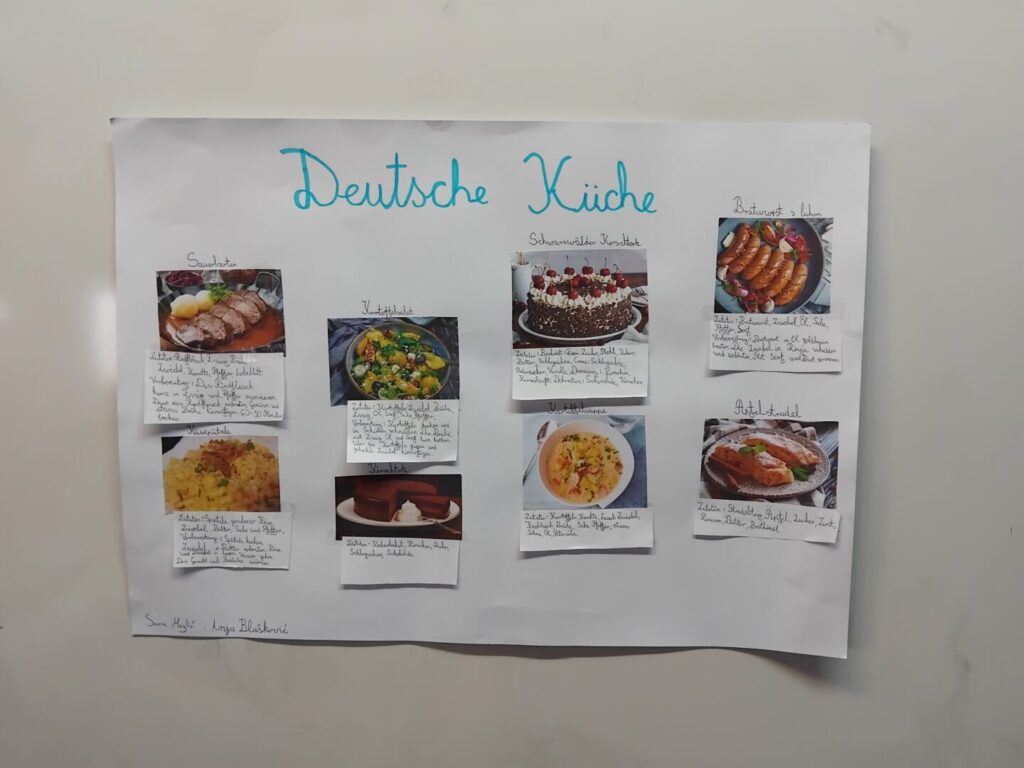 Deutsche Küche
Sauerbarten
Zutaten: Rindfleisch, Essig, Brühe
Zwiebel, Karotte, Pfeffer,
Vorbereitung: Das Rindfleisch
kurz in Essig und Pfeffer marinieren
Dann das Rindfleisch anbraten, Gemüse und
etwas Brühe hinzufügen 60-90 Minuten
kochen
Käsespätzle
Zutaten: Spätzle, geriebener Käse,
Zwiebel, Butter, Salz und Pfeffer,
Vorbereitung: Spätzle kochen
Zwiebeln in Butter anbraten, Käse
und
Das Gericht mit
Kartoffelsalat
Zutaten: Kartoffeln, Zwiebel, Brühe,
Essig, Öl, Senf, Salz, Pfeffer
Vorbereitung: Kartoffeln kochen und
in Scheiben schneiden, die Brühe
mit Essig, Öl und Senf kurz kochen
über die Kartoffeln gießen und
gehackte Zwiebel hinzufügen.
Kirschtorte
Zutaten: Kirschen, Zucker,
Schlagsahne, Schokolade
Schwarzwälder Kirschtorte
Zutaten: Biskuit: Eier, Zucker, Mehl, Kakao,
Butter, Schlagsahne, Creme: Schlagsahne,
Puderzucker, Vanille, Kirschen
Kirschsaft, Dekoration: Schokolade, Kirschen
Kartoffelsuppe
Zutaten: Kartoffeln, Karotte, Lauch, Zwiebel,
Knoblauch, Brühe, Salz, Pfeffer, etwas
Sahne, Öl, Petersilie
Bratwurst s lukom
Zutaten: Bratwurst, Zwiebel, Öl, Salz,
Pfeffer, Senf
Vorbereitung: Bratwurst in Öl goldbraun
braten. Die Zwiebel in Ringe schneiden
und anbraten. Mit Senf und Brot servieren
Apfelstrudel
Zutaten: Strudelteig, Äpfel, Zucker, Zimt,
Rosinen, Butter, Brotbrösel
Sara : Anja Blašković